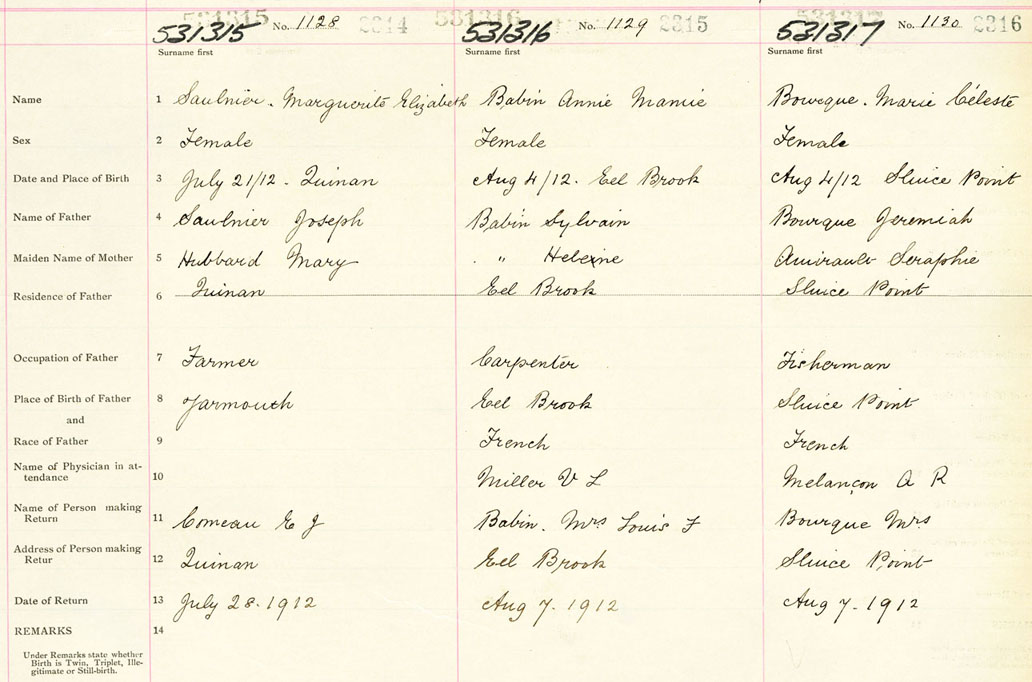 531315 No. 1128 2314 531316 No. 1129 2315 531317 No. 1130 2316
Surname first Surname first Surname first
Name 1 Saulnier. Marguerite Elizabeth Babin Annie Mamie Bourque. Marie Céleste
Sex 2 Female Female Female
Date and Place of Birth 3 July 21/12 - Quinan Aug 4/12. Eel Brook Aug 4/12 Sluice Point
Name of Father 4 Saulnier Joseph Babin Sylvain Bourque Jeremiah
Maiden Name of Mother 5 Hubbard Mary " Heleine Amirault Seraphie
Residence of Father 6 Quinan Eel Brook Sluice Point
Occupation of Father 7 Farmer Carpenter Fisherman
Place of Birth of Father 8 Yarmouth Eel Brook Sluice Point
and
Race of Father 9 French French
Name of Physician in at-
tendance 10 Miller V L Melançon A R
Name of Person making
Return 11 Comeau E J Babin. Mrs Louis F Bourque Mrs
Address of Person making
Retur 12 Quinan Eel Brook Sluice Point
Date of Return 13 July 28. 1912 Aug 7. 1912 Aug 7. 1912
REMARKS 14
Under Remarks state whether
Birth is Twin, Triplet, Ille-
gitimate or Still-birth.